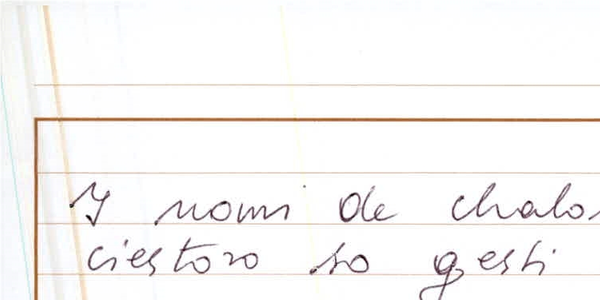 I nomi de chalo
ciestoro so gesti